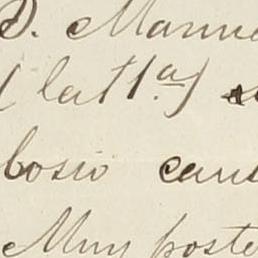 D. Manu
(lat 1.ª)
bosio caus
Muy poste